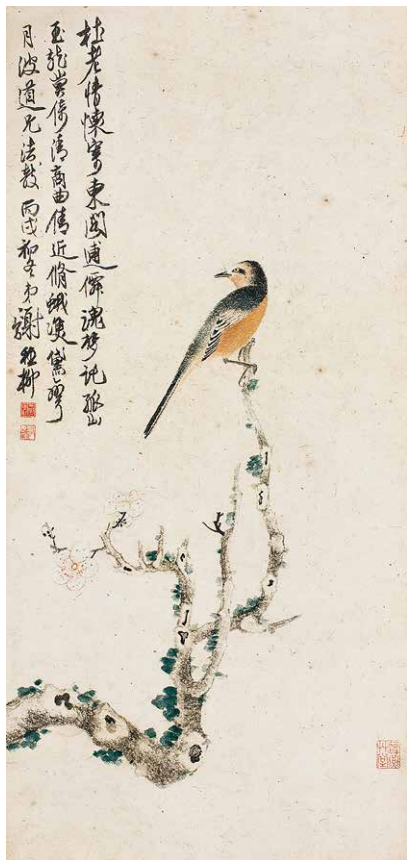 杜老情懷寄東閣逋僊魂夢記孤山
玉龍倚清商曲倩近脩蛾黛彎
月波道兄法教 丙戌初冬弟謝稚柳